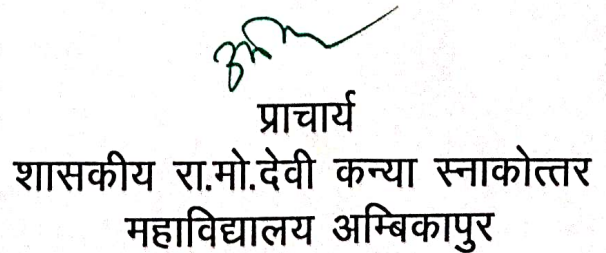 प्राचार्य
शासकीय रा.मो.देवी कन्या स्नाकोत्तर
महाविद्यालय अम्बिकापुर